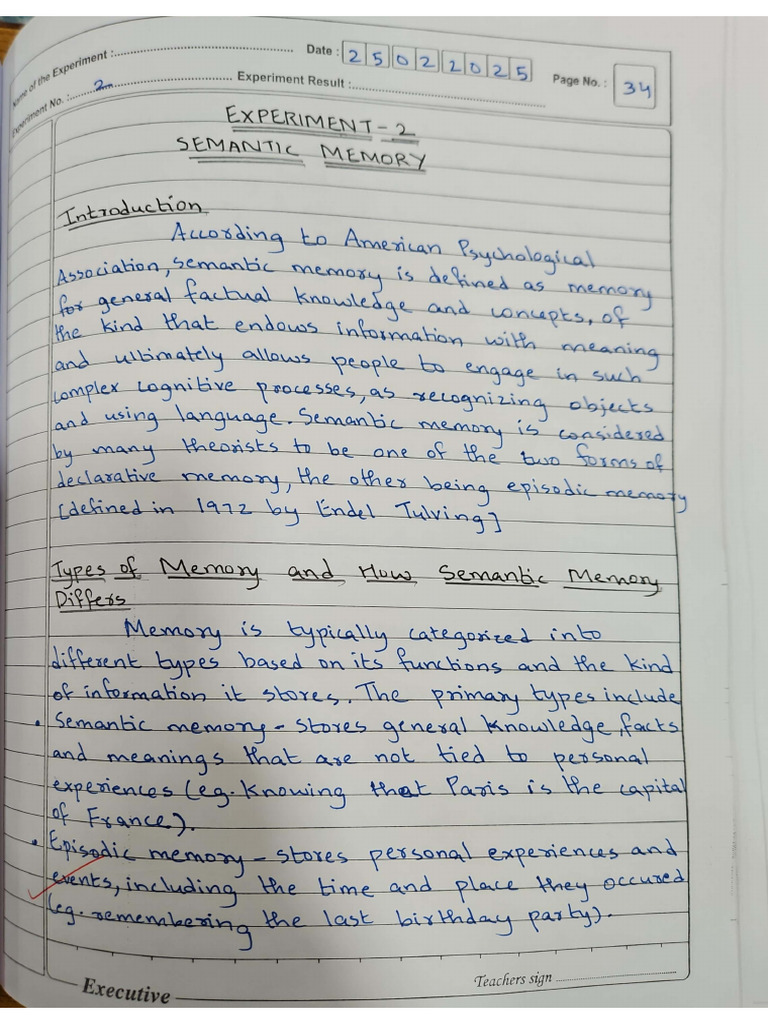 Name of the Experiment : Date : 25022025
Experiment No. : 2 Experiment Result : Page No. : 34
EXPERIMENT-2
SEMANTIC MEMORY
Introduction
According to American Psychological
Association, semantic memory is defined as memory
for general factual knowledge and concepts, of
the kind that endows information with meaning
and ultimately allows people to engage in such
complex cognitive processes, as recognizing objects
and using language. Semantic memory is considered
by many theorists to be one of the two forms of
declarative memory, the other being episodic memory
[defined in 1972 by Endel Tulving]
Types of Memory and How Semantic Memory
Differs
Memory is typically categorized into
different types based on its functions and the kind
of information it stores. The primary types include
• Semantic memory - stores general knowledge, facts
and meanings that are not tied to personal
experiences (eg. Knowing that Paris is the capital
of France).
• Episodic memory - stores personal experiences and
events, including the time and place they occured
(eg. remembering the last birthday party).
Executive Teachers sign